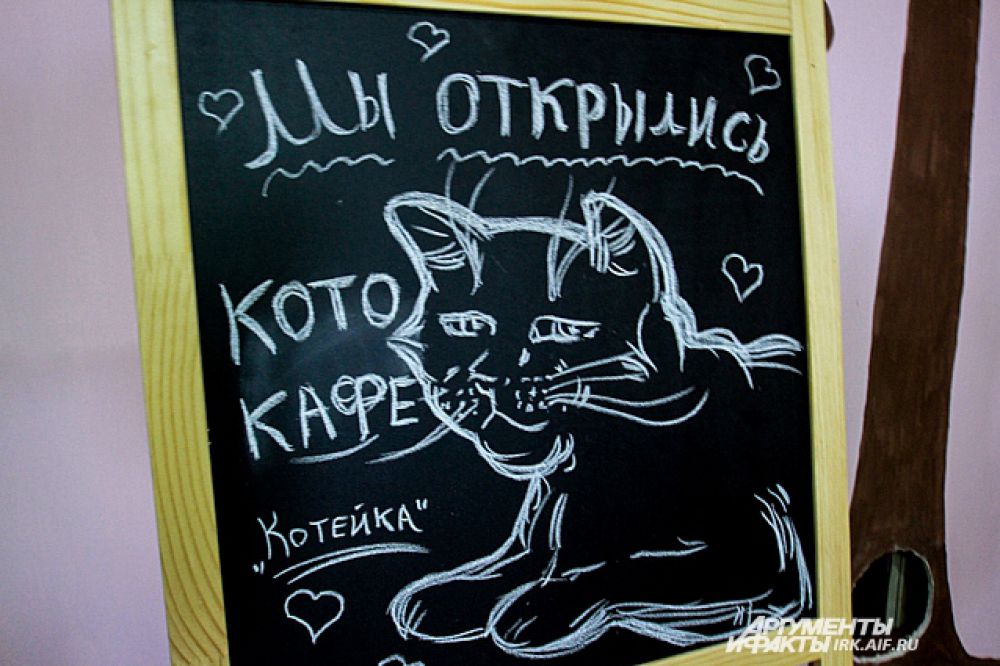 Мы открылись
КОТО
КАФЕ
„Котейка"
АРГУМЕНТЫ
И ФАКТЫ IRK.AIF.RU